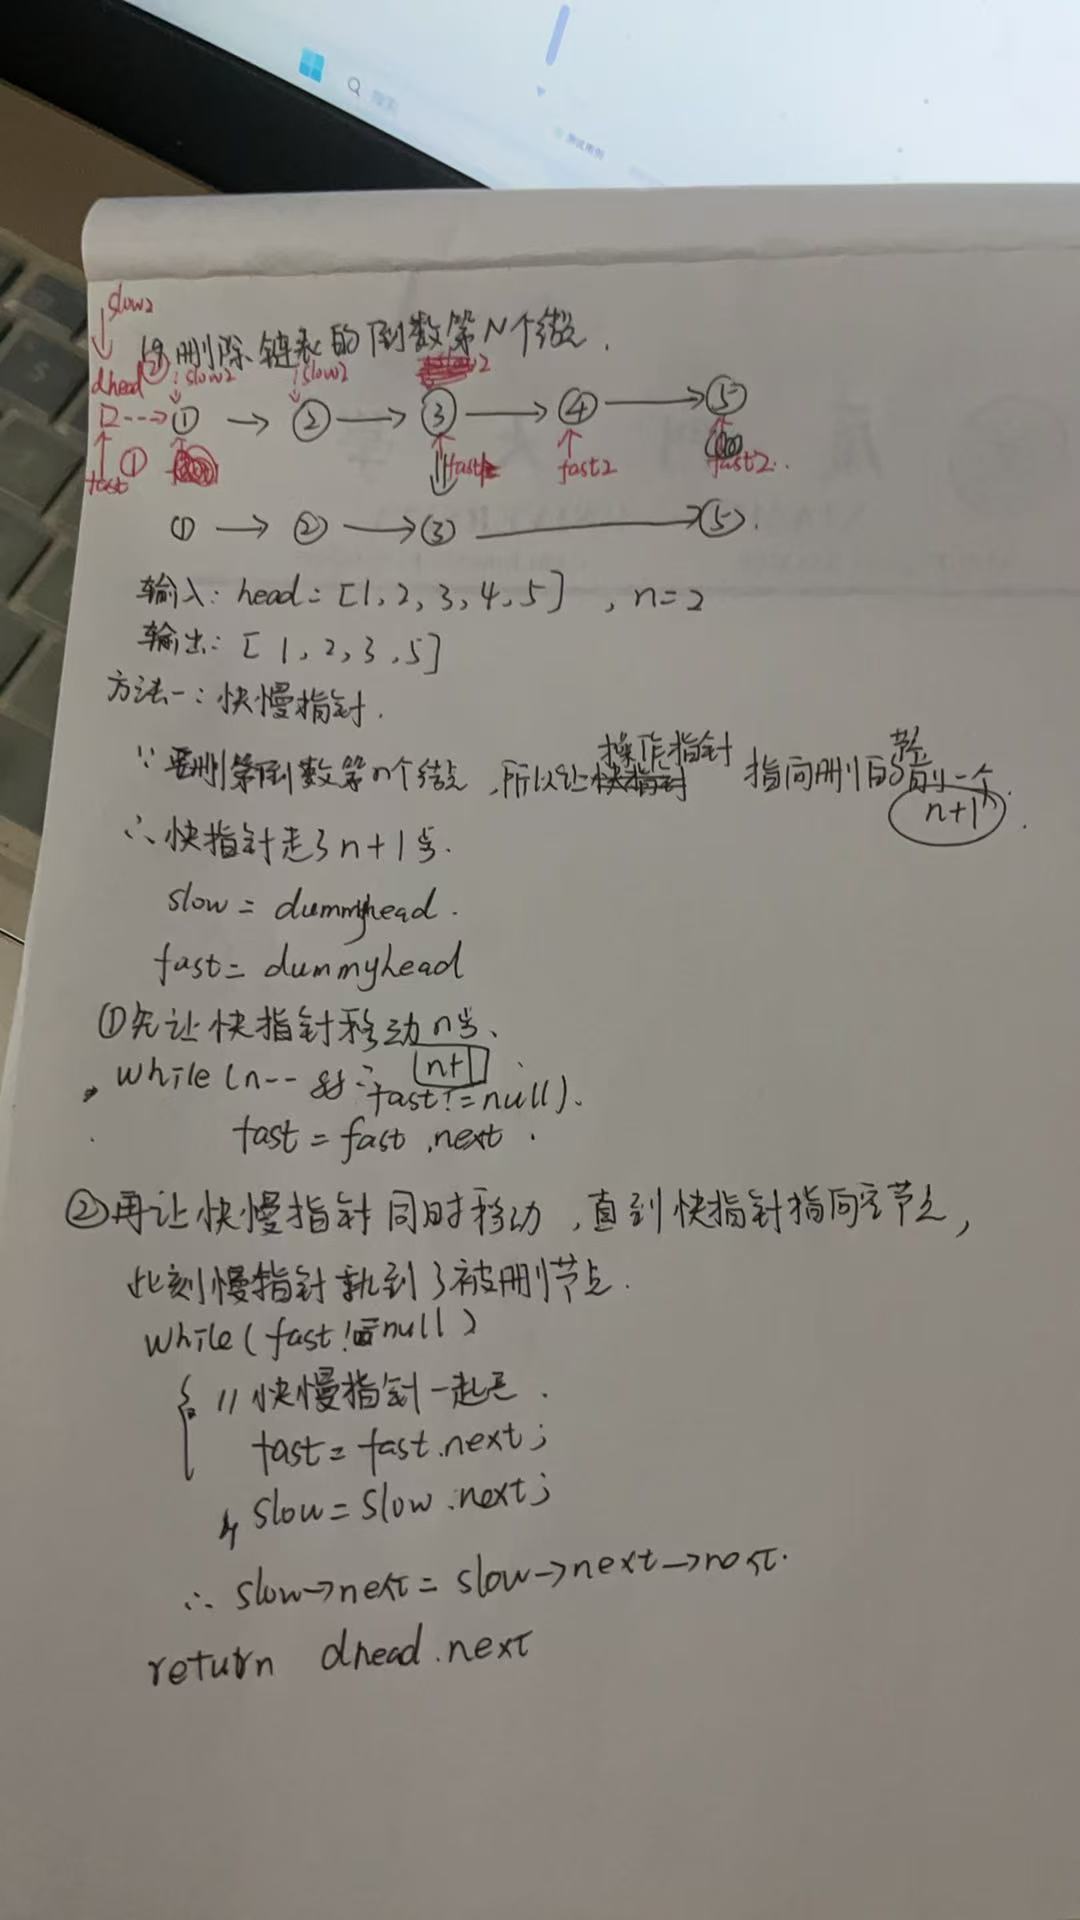 搜索
测试用例
slow2
19.删除链表的倒数第N个结点.
dhead ② slow2 slow2 slow2
① → ② → ③ → ④ → ⑤
fast ① fast fast2 fast2..
① → ② → ③ → ⑤.
输入: head = [1, 2, 3, 4, 5] , n=2
输出: [ 1, 2, 3, 5]
方法一: 快慢指针.
操作指针 节点
∵ 要删第倒数第n个结点,所以让快指针 指向删的前一个.
n+1
∴ 快指针走了n+1步.
slow = dummyhead.
fast = dummyhead
①先让快指针移动n步、
n+1
while (n-- && fast != null).
fast = fast.next.
②再让快慢指针同时移动,直到快指针指向空节点,
此刻慢指针就到了被删节点.
while( fast != null )
{ // 快慢指针一起走.
fast = fast.next;
slow = slow.next;
∴ slow→next = slow→next→next.
return dhead.next